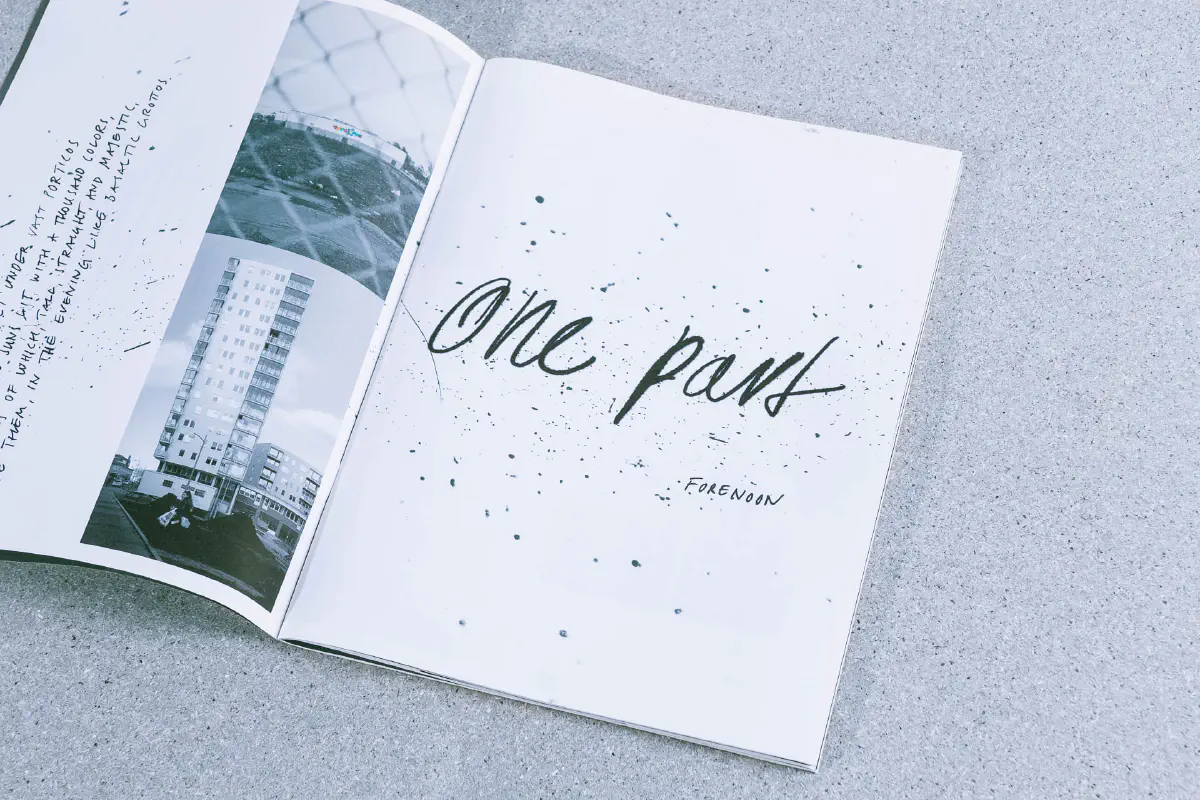 UNDER VAST PORTICOS
SUNS LIT WITH A THOUSAND COLORS,
OF WHICH, TALL, STRAIGHT, AND MAJESTIC,
THEM, IN THE EVENING LIKE BASALTIC GROTTOS
One part
FORENOON